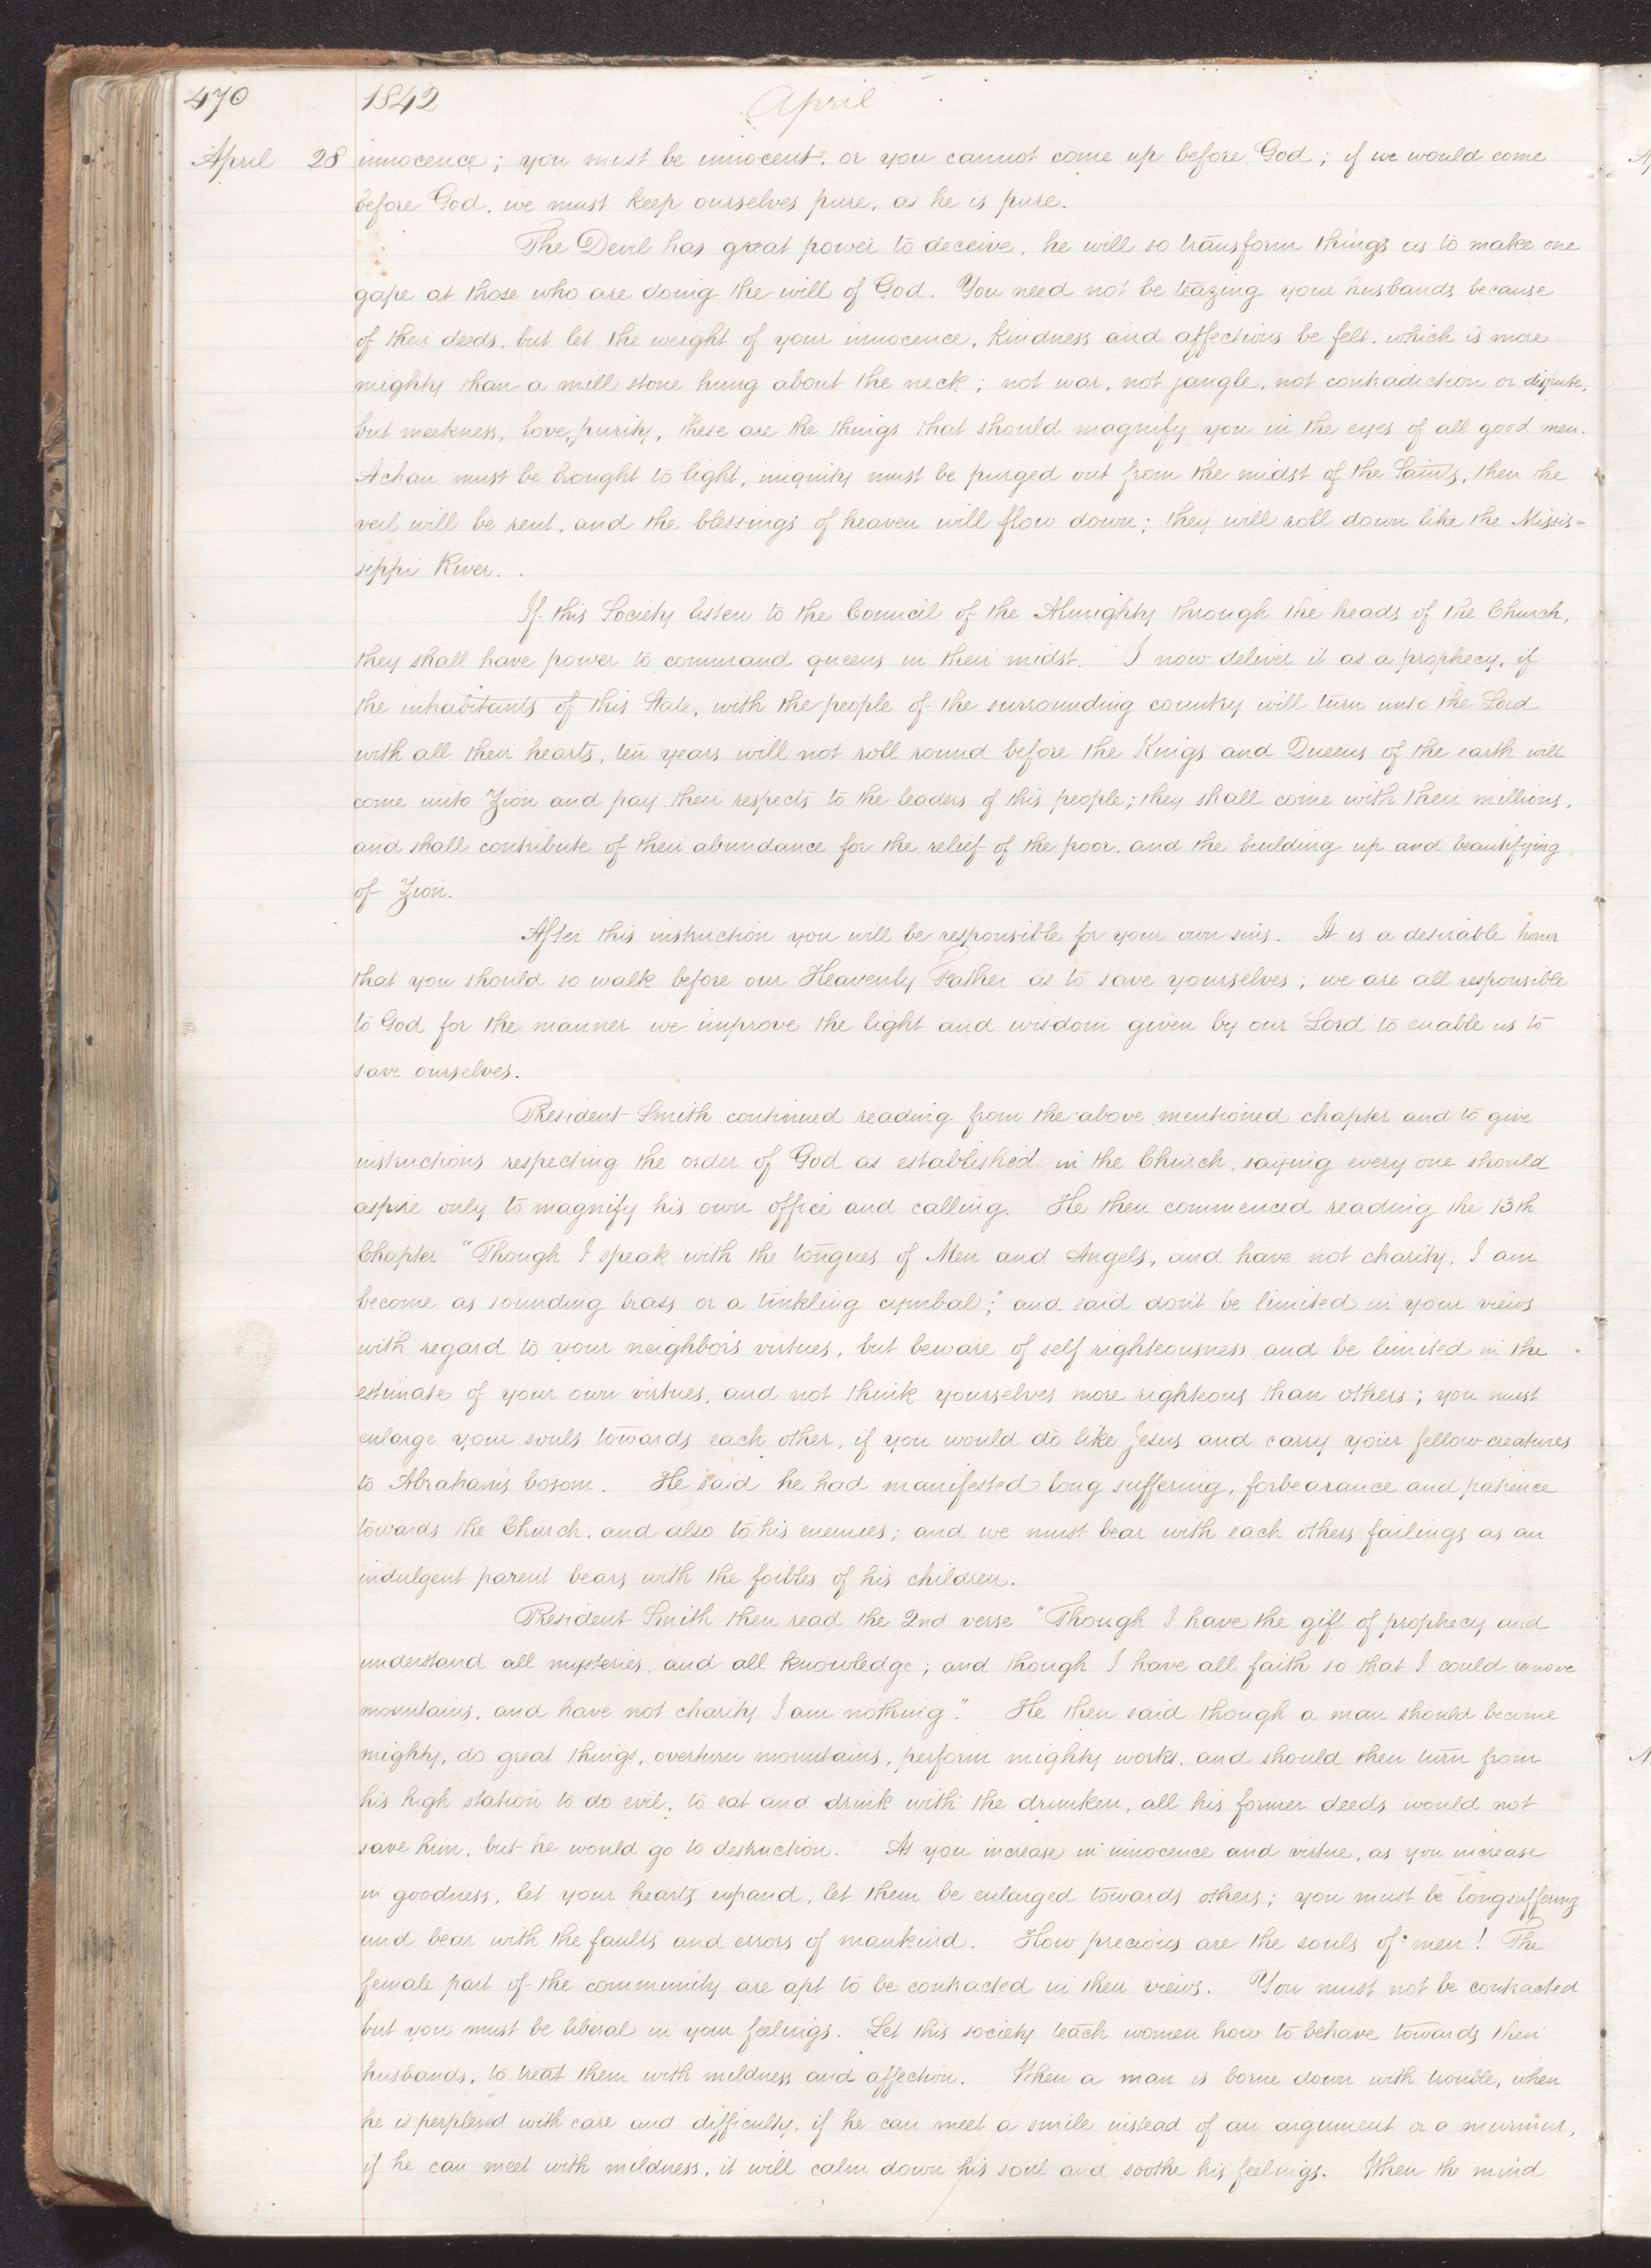 470 1842 April
April 28 innocence; you must be innocent, or you cannot come up before God; if we would come
before God, we must keep ourselves pure, as he is pure.
The Devil has great power to deceive, he will so transform things as to make one
gape at those who are doing the will of God. You need not be teazing your husbands because
of their deeds, but let the weight of your innocence, kindness and affections be felt, which is more
mighty than a mill stone hung about the neck; not war, not jangle, not contradiction or dispute,
but meekness, love, purity, these are the things that should magnify you in the eyes of all good men.
Achan must be brought to light, iniquity must be purged out from the midst of the Saints, then the
veil will be rent, and the blessings of heaven will flow down; they will roll down like the Missis=
sippi River.
If this Society listen to the Council of the Almighty through the heads of the Church,
they shall have power to command queens in their midst. I now deliver it as a prophecy, if
the inhabitants of this State, with the people of the surrounding country will turn unto the Lord
with all their hearts, ten years will not roll round before the Kings and Queens of the earth will
come unto Zion and pay their respects to the leaders of this people; they shall come with their millions,
and shall contribute of their abundance for the relief of the poor, and the building up and beautifying
of Zion.
After this instruction you will be responsible for your own sins. It is a desirable honor
that you should so walk before our Heavenly Father as to save yourselves; we are all responsible
to God for the manner we improve the light and wisdom given by our Lord to enable us to
save ourselves.
President Smith continued reading from the above mentioned chapter and to give
instructions respecting the order of God as established in the Church, saying every one should
aspire only to magnify his own office and calling. He then commenced reading the 13th
Chapter "Though I speak with the tongues of Men and Angels, and have not charity, I am
become as sounding brass or a tinkling cymbal;" and said don't be limited in your views
with regard to your neighbor's virtues, but beware of self righteousness and be limited in the
estimate of your own virtues, and not think yourselves more righteous than others; you must
enlarge your souls towards each other, if you would do like Jesus and carry your fellow creatures
to Abraham's bosom. He said he had manifested long suffering, forbearance and patience
towards the Church, and also to his enemies; and we must bear with each others failings as an
indulgent parent bears with the foibles of his children.
President Smith then read the 2nd verse "Though I have the gift of prophecy and
understand all mysteries, and all knowledge; and though I have all faith so that I could remove
mountains, and have not charity I am nothing". He then said though a man should become
mighty, do great things, overturn mountains, perform mighty works, and should then turn from
his high station to do evil, to eat and drink with the drunken, all his former deeds would not
save him, but he would go to destruction. As you increase in innocence and virtue, as you increase
in goodness, let your hearts expand, let them be enlarged towards others; you must be longsuffering
and bear with the faults and errors of mankind. How precious are the souls of men! The
female part of the community are apt to be contracted in their views. You must not be contracted
but you must be liberal in your feelings. Let this society teach women how to behave towards their
husbands, to treat them with mildness and affection. When a man is borne down with trouble, when
he is perplexed with care and difficulty, if he can meet a smile instead of an argument or a murmur,
if he can meet with mildness, it will calm down his soul and soothe his feelings. When the mind